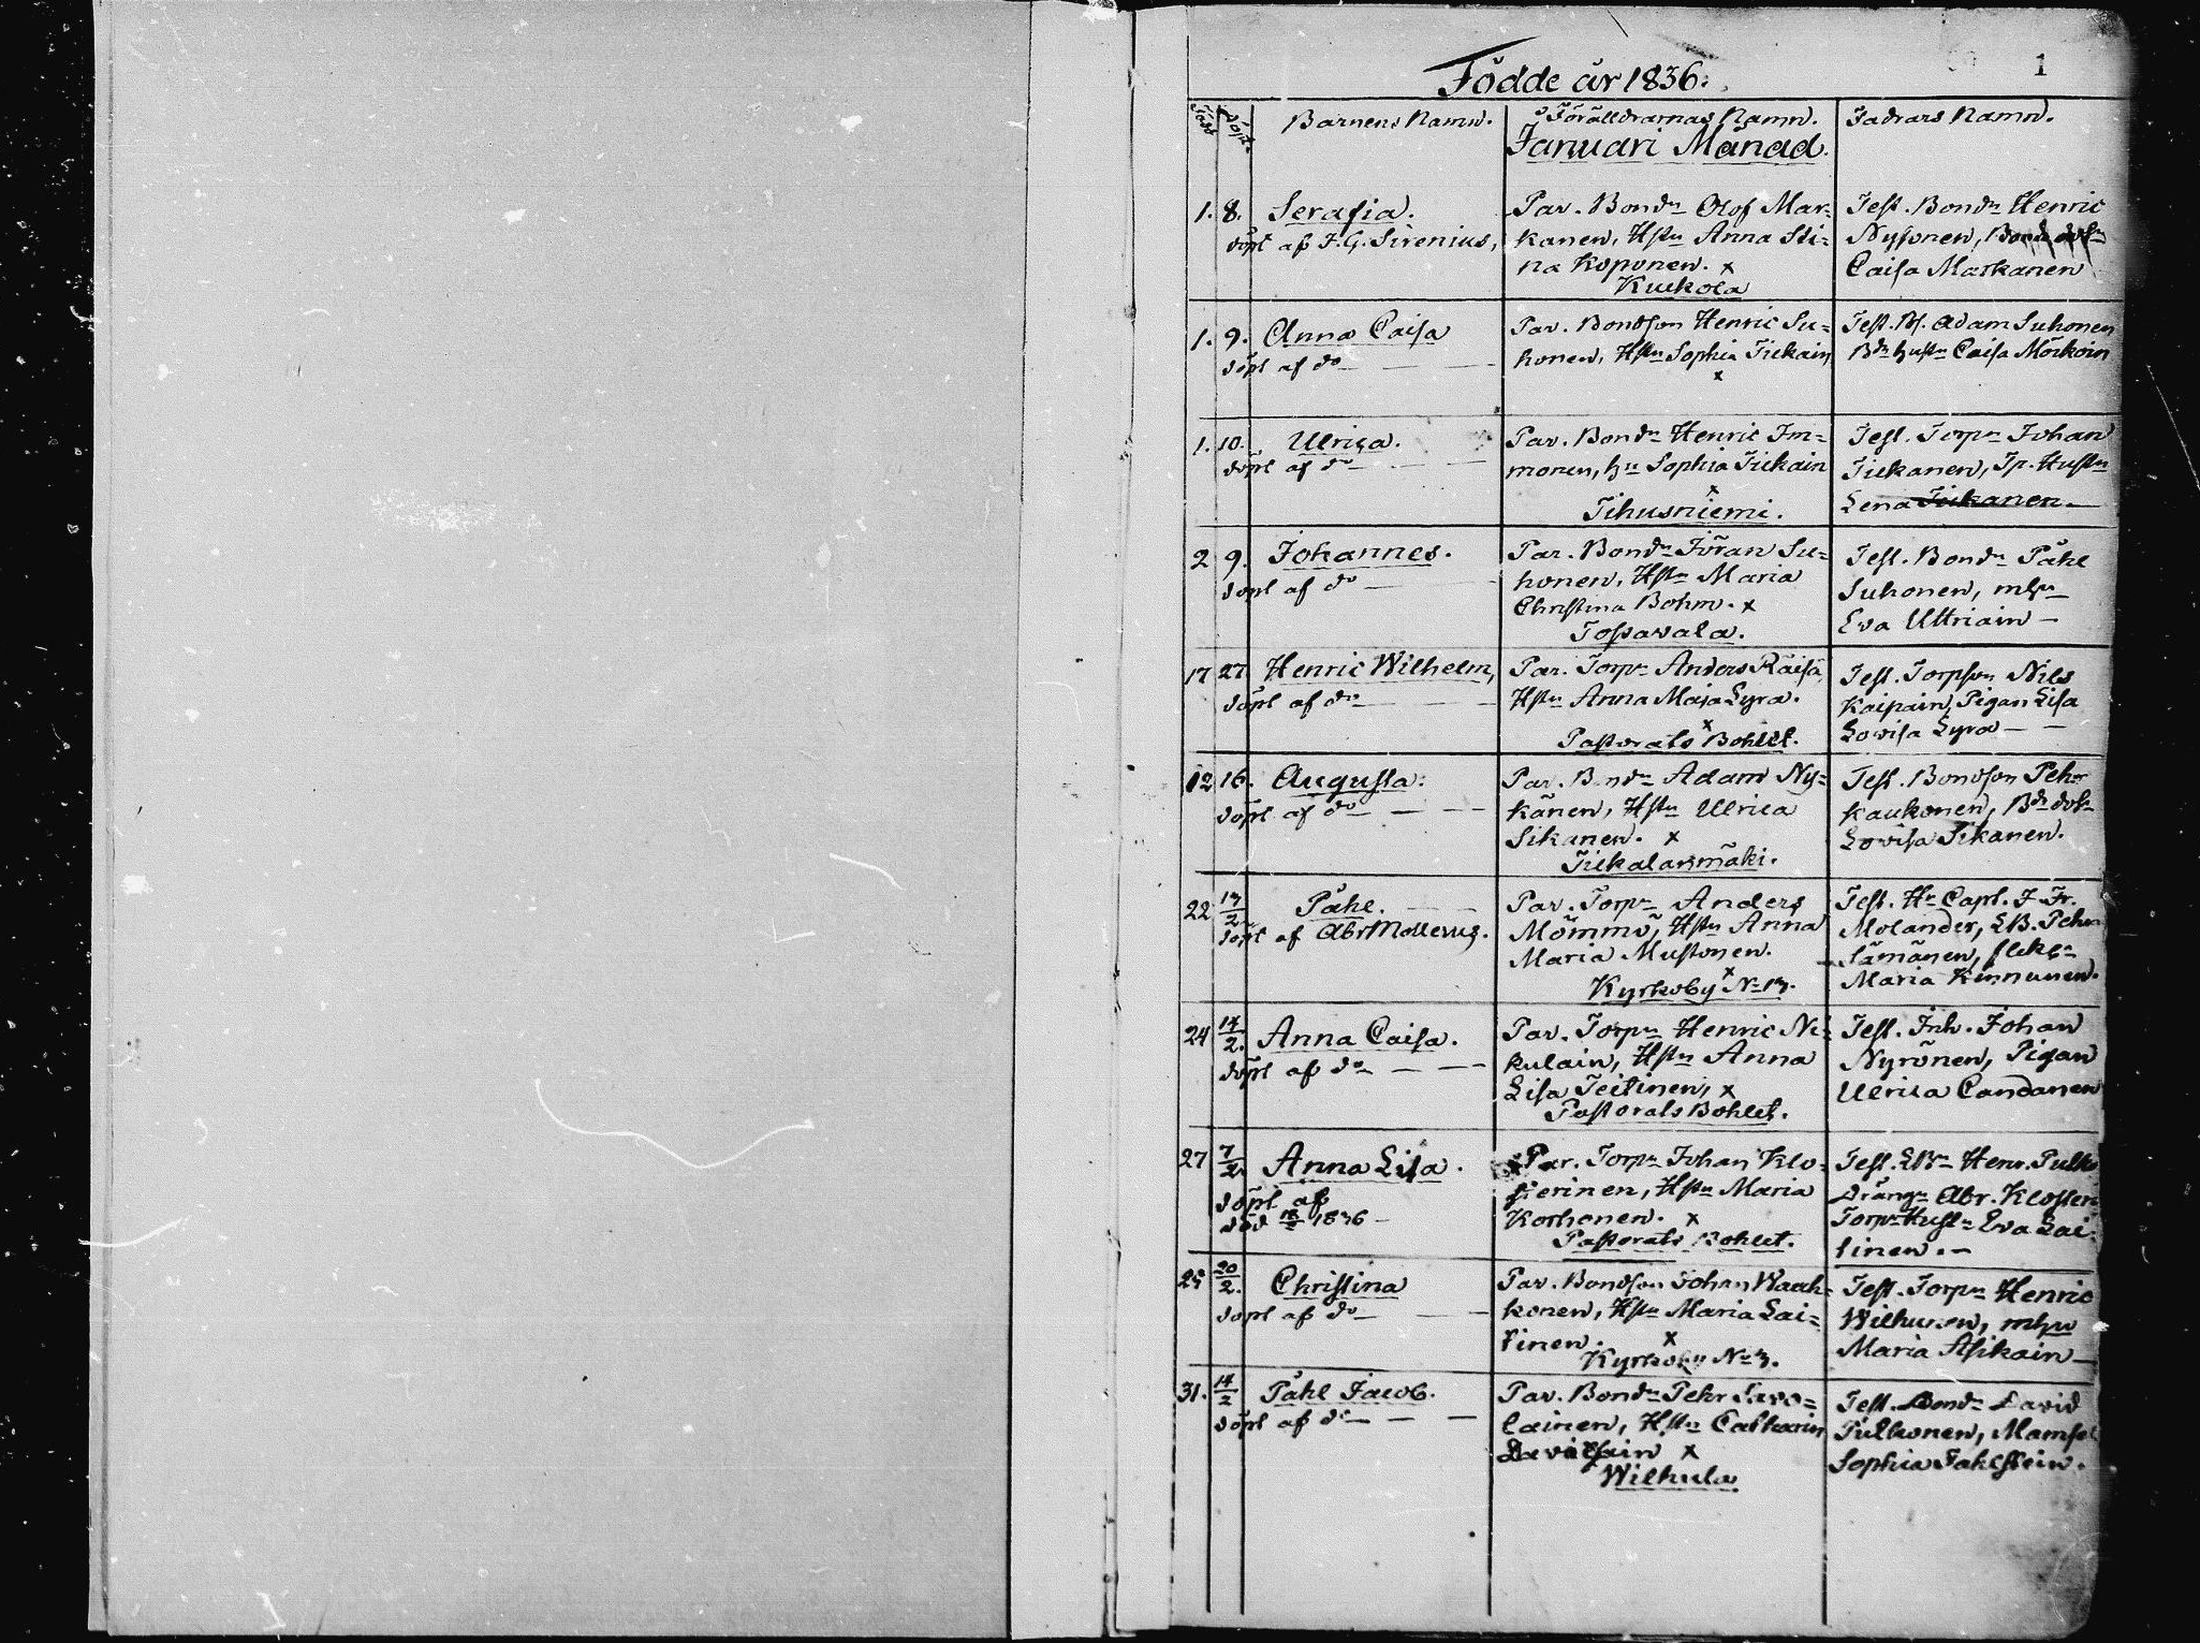 1
Födde år 1836.
Född Döpt. Barnens Namn. Föräldrarnas Namn. Fadrars Namn.
Januari Månad.
1. 8. Serafia.
döpt af F. G. Sirenius,
Par. Bondn Olof Mar=
kanen, Hstn Anna Sti=
na Koponen. x
Kuckola
Test. Bondn Henric
Nysonen,
Caisa Markanen
1. 9. Anna Caisa
döpt af do
Par. Bondson Henric Su=
honen, Hstn Sophia Tiekain
x
Test. Bs. Adam Suhonen
Bdn hustn Caisa Mörkoin
1. 10. Ulrica.
döpt af do
Par. Bondn Henric Im=
monen, hn Sophia Tiekain
x
Tihusniemi.
Test. Torpn Johan
Tiekanen, Tp. Hustn
Lena Tiekanen.
2 9. Johannes.
döpt af do
Par. Bondn Jöran Su=
honen, Hstn Maria
Christina Bohm. x
Tossavala.
Test. Bondn Påhl
Suhonen, mhn
Eva Uttriain
17 27. Henric Wilhelm,
döpt af do
Par. Torpn Anders Räisä
Hstn Anna Maja Lyra.
x
Pastorats Bohlet.
Test. Torpson Nils
Kaipain, Pigan Lisa
Lovisa Lyra
12 16. Augusta.
döpt af do
Par. Bondn Adam Ny=
känen, Hstn Ulrica
Sikanen. x
Tiekalanmäki.
Test. Bondson Pehr
Kaukonen, Bdn dotr
Lovisa Sikanen.
22 13/2 Påhl.
döpt af Abr Mollerus.
Par. Torpn Anders
Mömmö, Hstn Anna
Maria Mustonen.
x
Kyrkoby No 13.
Test. Hr Capt. J. Fr.
Molander, LB. Pehr
Sämänen,
Maria Kinnunen.
24 14/2. Anna Caisa.
döpt af do
Par. Torpn Henric Ni=
kulain, Hstn Anna
Lisa Teitinen, x
Pastorats Bohlet.
Test. Inh. Johan
Nyrönen, Pigan
Ulrica Candanen
27 7/2 Anna Lisa.
döpt af
död 1836
Par. Torpn Johan Klo=
sterinen, Hstn Maria
Korhonen. x
Pastorats Bohlet.
Test. LBn Henr. Pulko
Drängn Abr. Kloster
Torpn Hustn Eva Lai=
tinen.
25 20/2. Christina
döpt af do
Par. Bondson Johan Waah=
konen, Hstn Maria Lai=
tinen. x
Kyrkoby No 3.
Test. Torpn Henric
Wilhunen, mhu
Maria Asikain
31. 14/2 Påhl Jacob.
döpt af do
Par. Bondn Pehr Savo=
lainen, Hstn Catharin
Davidsain x
Wilhula
Test. Bondn David
Pulkonen, Mamsel
Sophia Fahlstein.